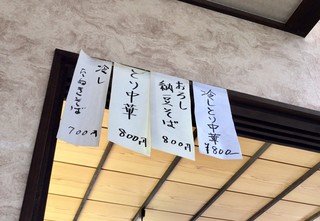 冷しとり中華
¥800-
おろし
納豆そば
800円
とり中華
800円
冷し
たぬきそば
700円